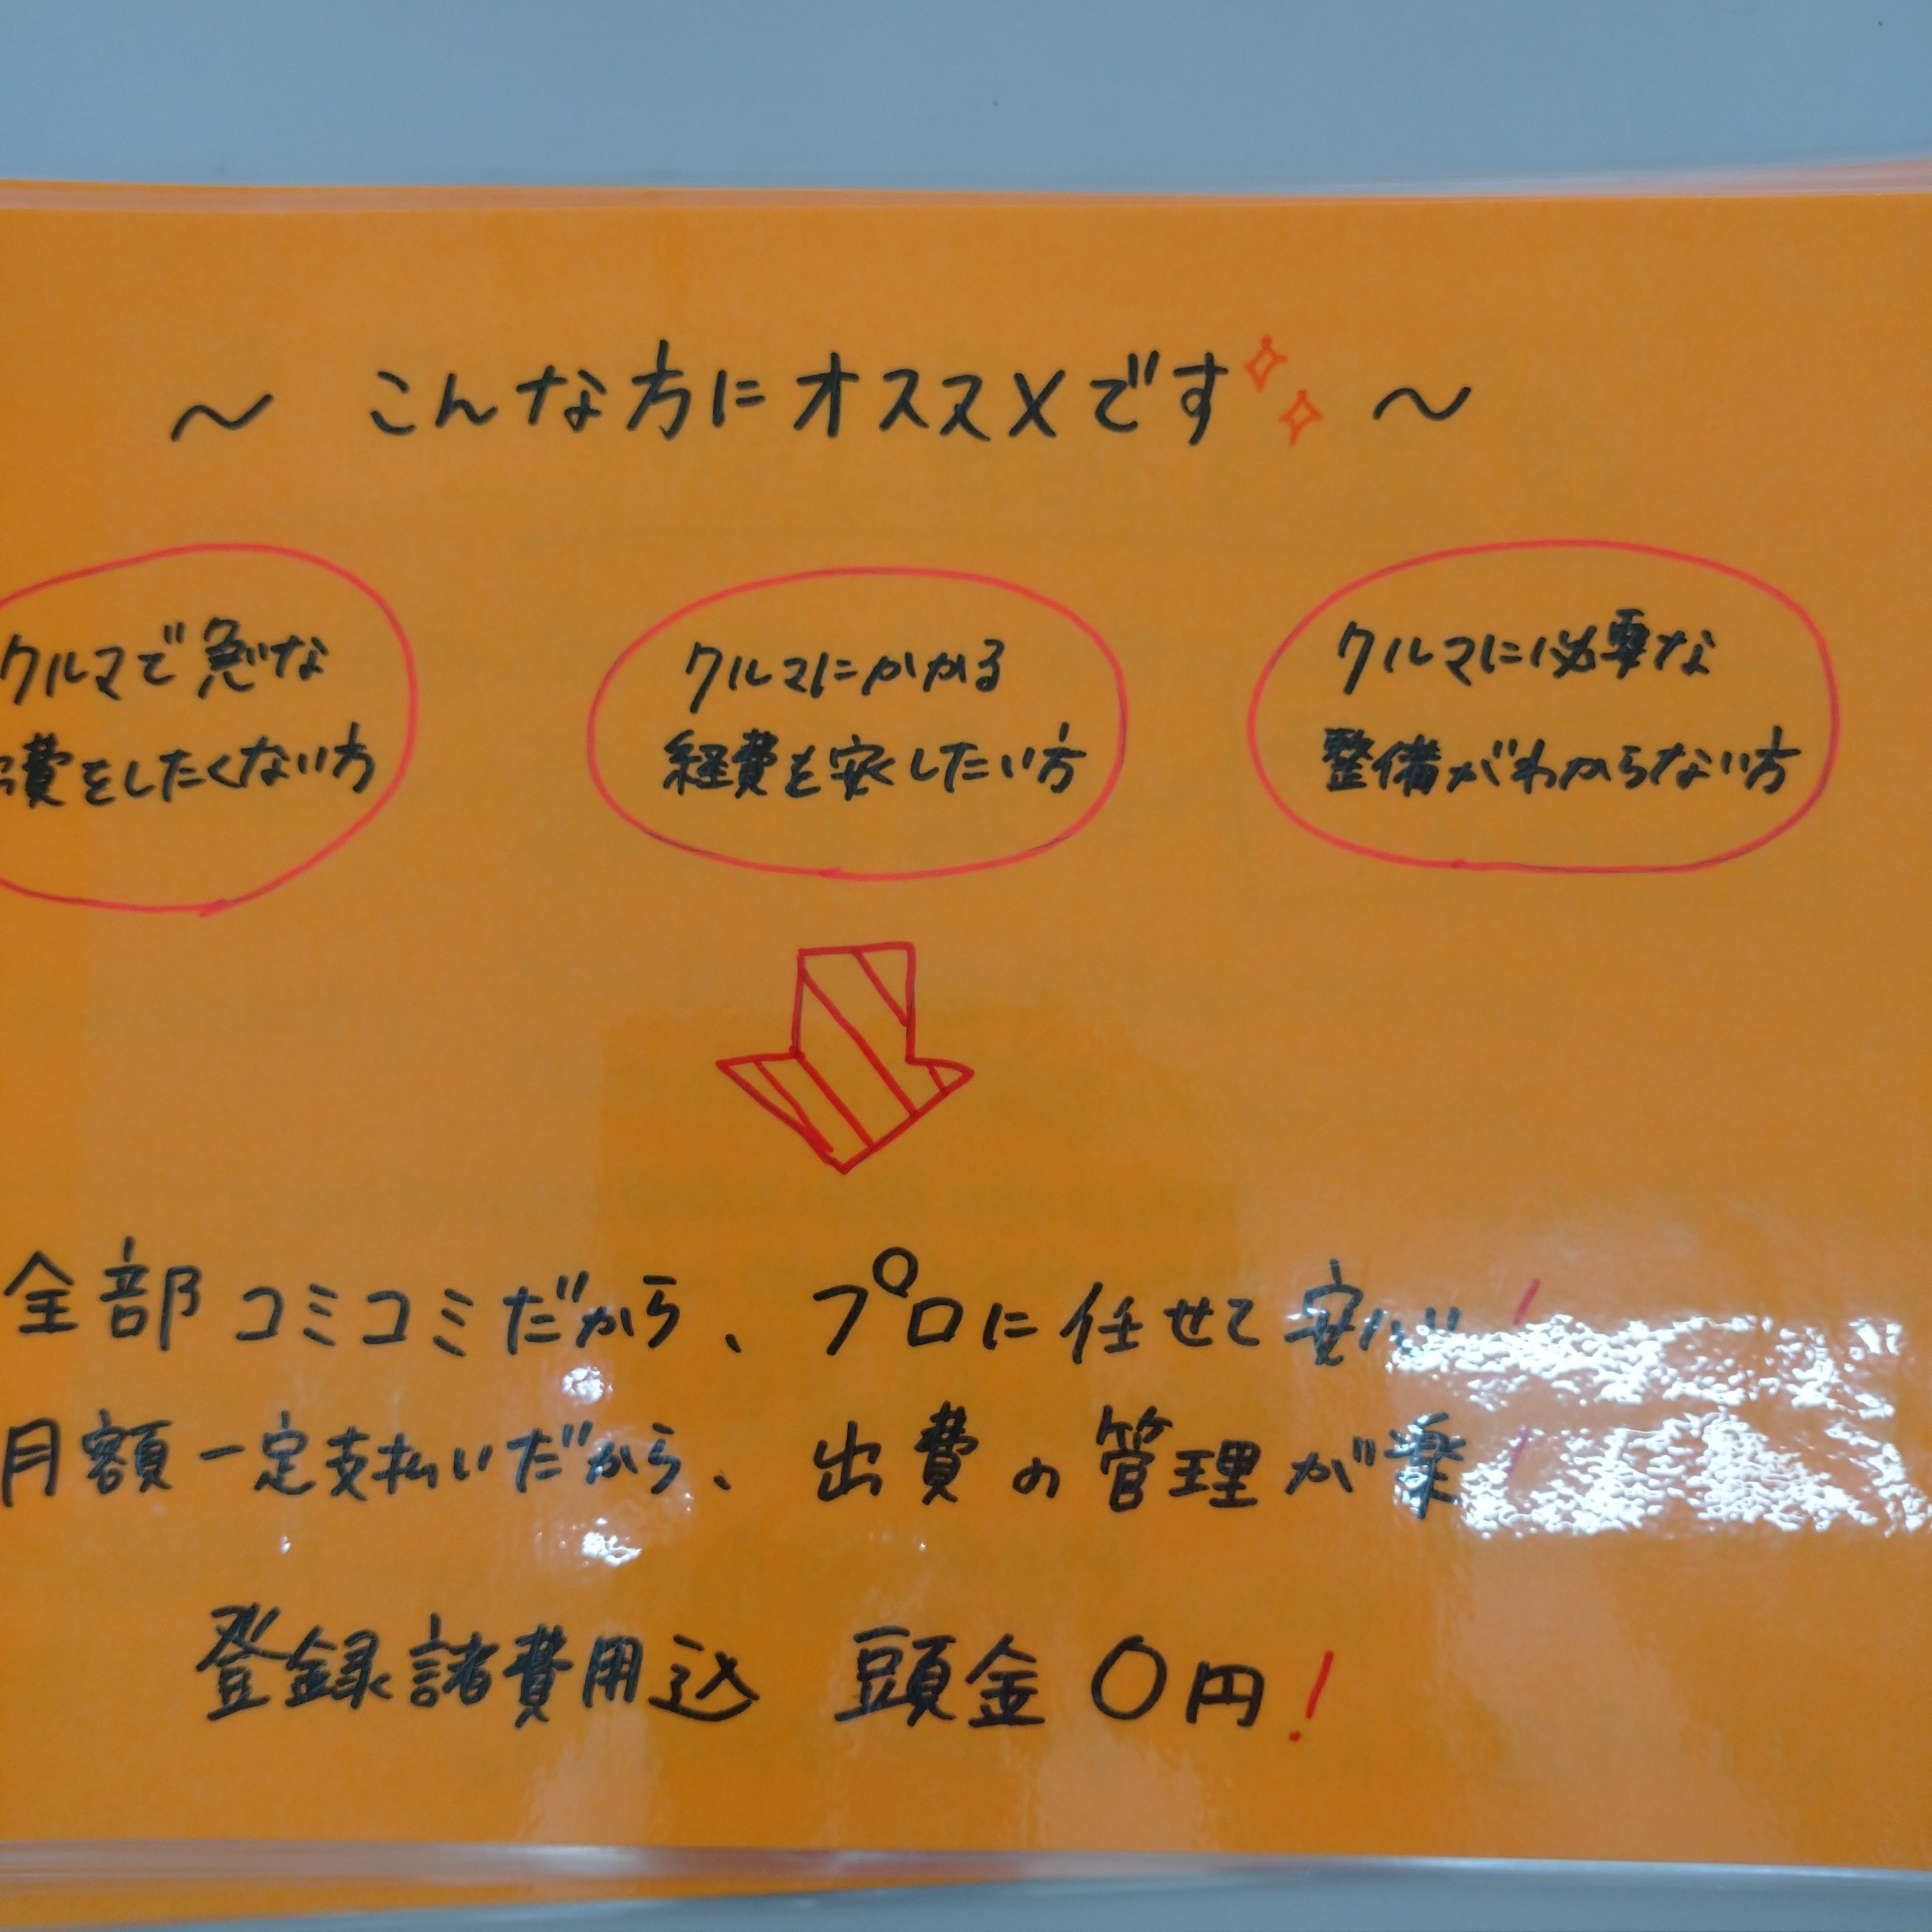 ～ こんな方にオススメです ～
クルマで急な
費をしたくない方
クルマにかかる
経費を安くしたい方
クルマに必要な
整備がわからない方
全部コミコミだから、プロに任せて安心!
月額一定支払いだから、出費の管理が楽!
登録諸費用込 頭金0円!